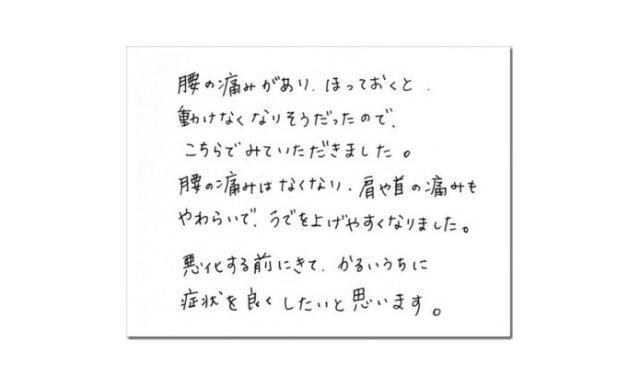 腰の痛みがあり、ほっておくと、
動けなくなりそうだったので、
こちらでみていただきました。
腰の痛みはなくなり、肩や首の痛みも
やわらいで、うでを上げやすくなりました。
悪化する前にきて、かるいうちに
症状を良くしたいと思います。